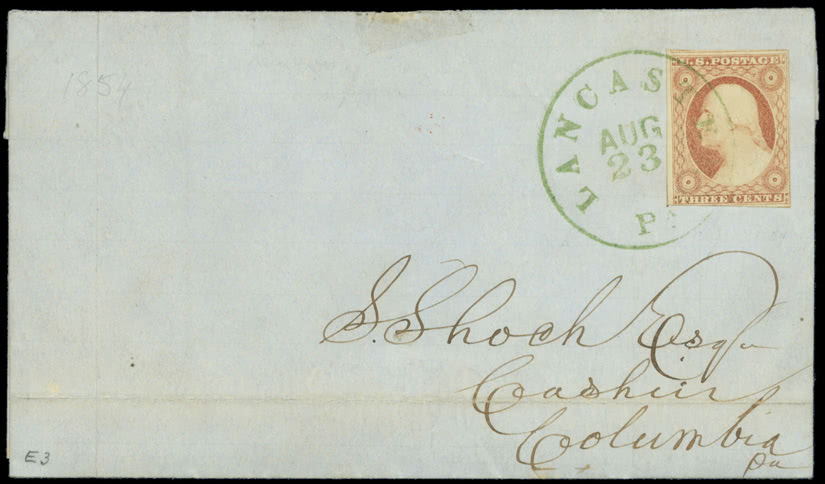 1854
LANCAS
AUG
23
Pa
U.S. POSTAGE
THREE CENTS
S. Shoch Esqr
Cashier
Columbia
Pa
E3